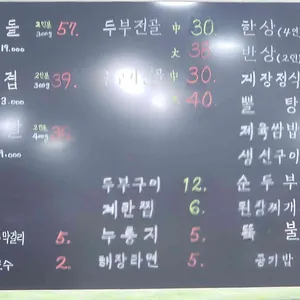 돌 2인분 300g 57. 두부전골 中 30. 한상(4인
19.000 大 38. 반상(2인
겹 2인분 300g 39. 中 30. 제장정식
3.000 大 40. 뻘 탕
2인분 400g 36. 제육쌈밥
9.000 생선구이
두부구이 12. 순두부
계란찜 6. 된장찌개
막걸리 5. 누룽지 5. 뚝불
수 2. 해장라면 5. 공기밥